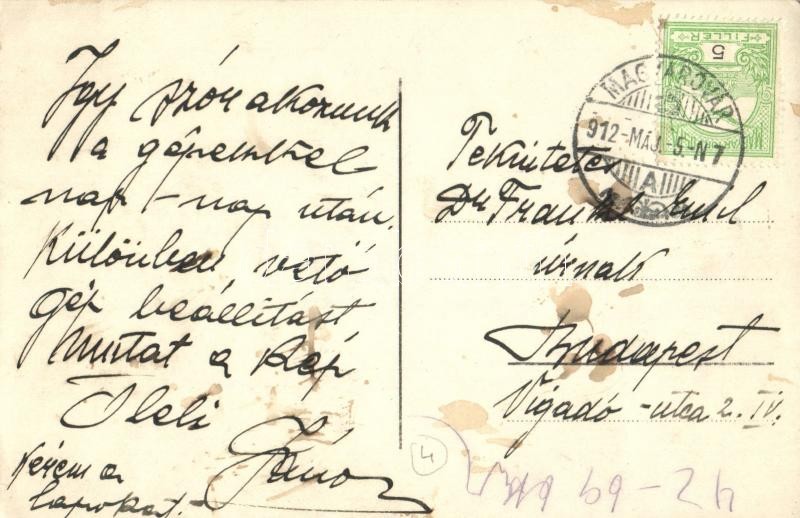 Igy szórakozunk
a gépeinkkel
nap-nap után.
Különben vető
gép beállitást
mutat a kép
Ölel
János
Kérem a
lapokat.-
FILLÉR
5
MAGYARÓVÁR
912-MÁJ.-5-N7
A
Tekintetes
Dr Frankl Emil
úrnak
Budapest
Vigadó-utca 2. IV.
4
42-69